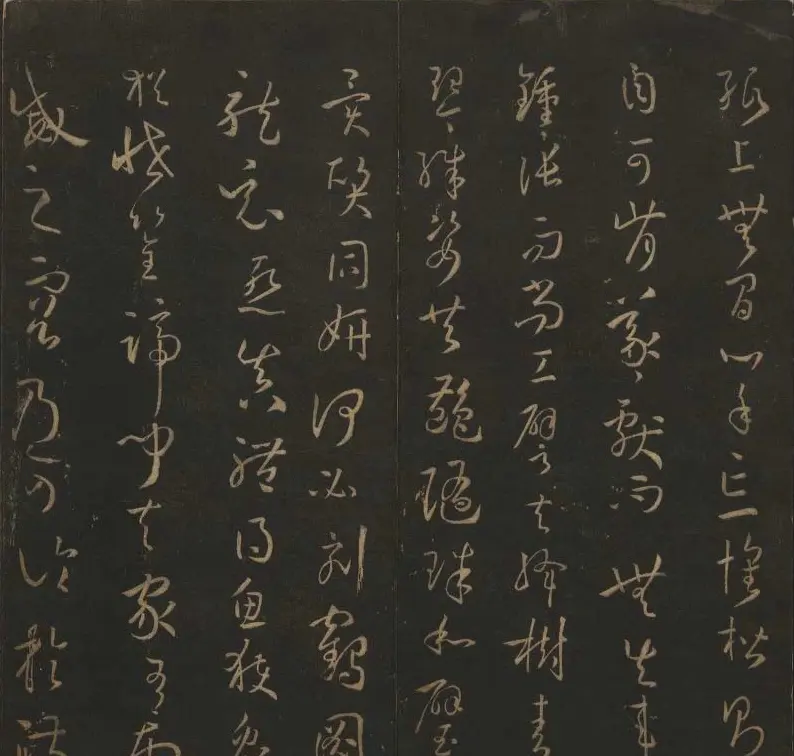 紙上無間心手忘懷楷則
自可背羲獻而無失違
鍾張而尚工譬夫絳樹青
琴殊姿共艷隋珠和璧
異質同妍何必刻鶴圖
龍竟慚真體得魚獲兔
猶恡筌蹄聞夫家有南
威之容乃可論於淑